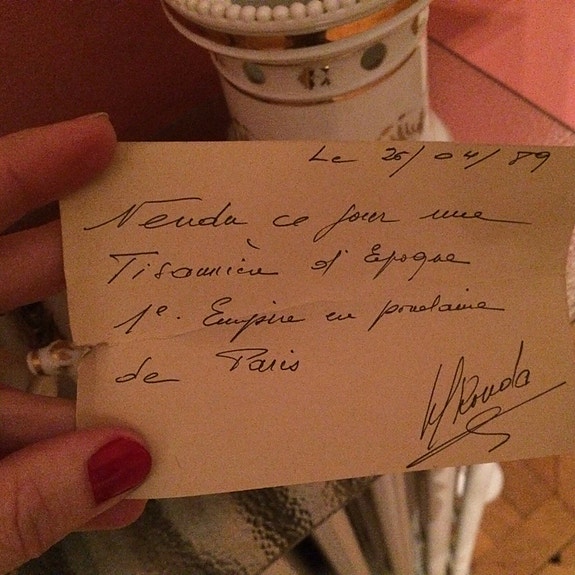 Le 26/04/89
Vendu ce jour une
Tisanière d'Epoque
1e. Empire en porcelaine
de Paris
Ronda